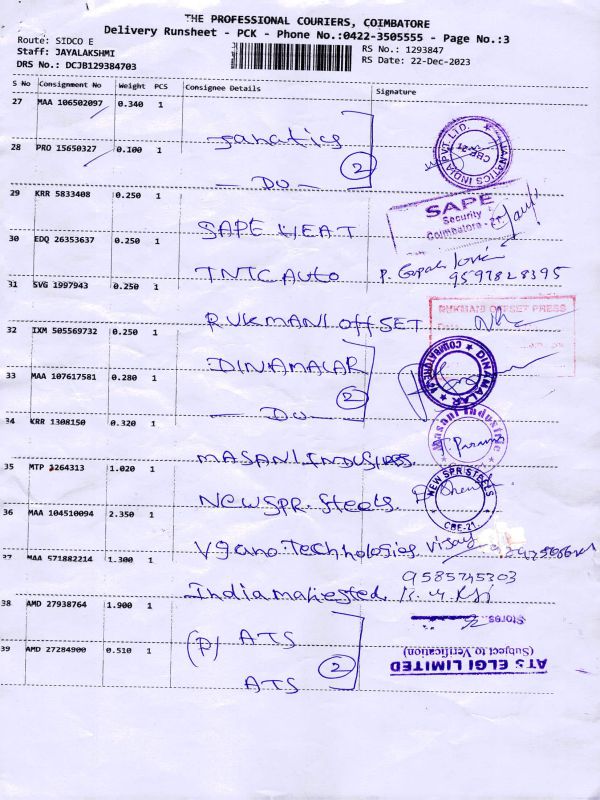 THE PROFESSIONAL COURIERS, COIMBATORE
Delivery Runsheet - PCK - Phone No.:0422-3505555 - Page No.:3
Route: SIDCO E
RS No.: 1293847
Staff: JAYALAKSHMI
RS Date: 22-Dec-2023
DRS No.: DCJB129384703
S No Consignment No Weight PCS Consignee Details Signature
27 MAA 106502097 0.340 1 fanatics
28 PRO 15650327 0.100 1 — DO — 2
29 KRR 5833408 0.250 1 SAPE HEAT
SAPE
Security
Coimbatore - 21
30 EDQ 26353637 0.250 1 TNTC Auto
9597828395
31 SVG 1997943 0.250 1 RUKMANI OFFSET
RUKMANI OFFSET PRESS
32 IXM 505569732 0.250 1 DINAMALAR
DINAMALAR COIMBATORE
33 MAA 107617581 0.280 1 — DO — 2
34 KRR 1308150 0.320 1 MASANI INDUSTRIES
Masani Industries
35 MTP 1264313 1.020 1 NEW SPR Steels
NEW SPR STEELS
CBE-21
36 MAA 104510094 2.350 1 Technologies Vijay
37 MAA 571882214 1.300 1 Indiamajested
9585745303
38 AMD 27938764 1.900 1 (P) ATS
Stores
39 AMD 27284900 0.510 1 ATS 2
(Subject to Verification)
ATS ELGI LIMITED